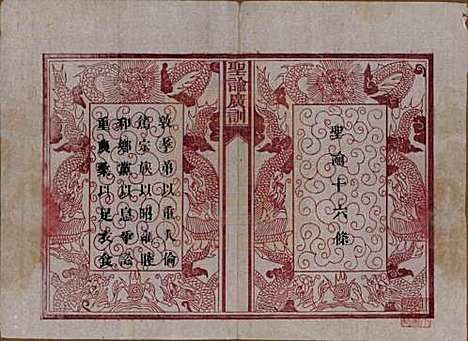 聖諭十六條
聖諭廣訓
敦孝弟以重人倫
篤宗族以昭雍睦
和鄉黨以息爭訟
重農桑以足衣食